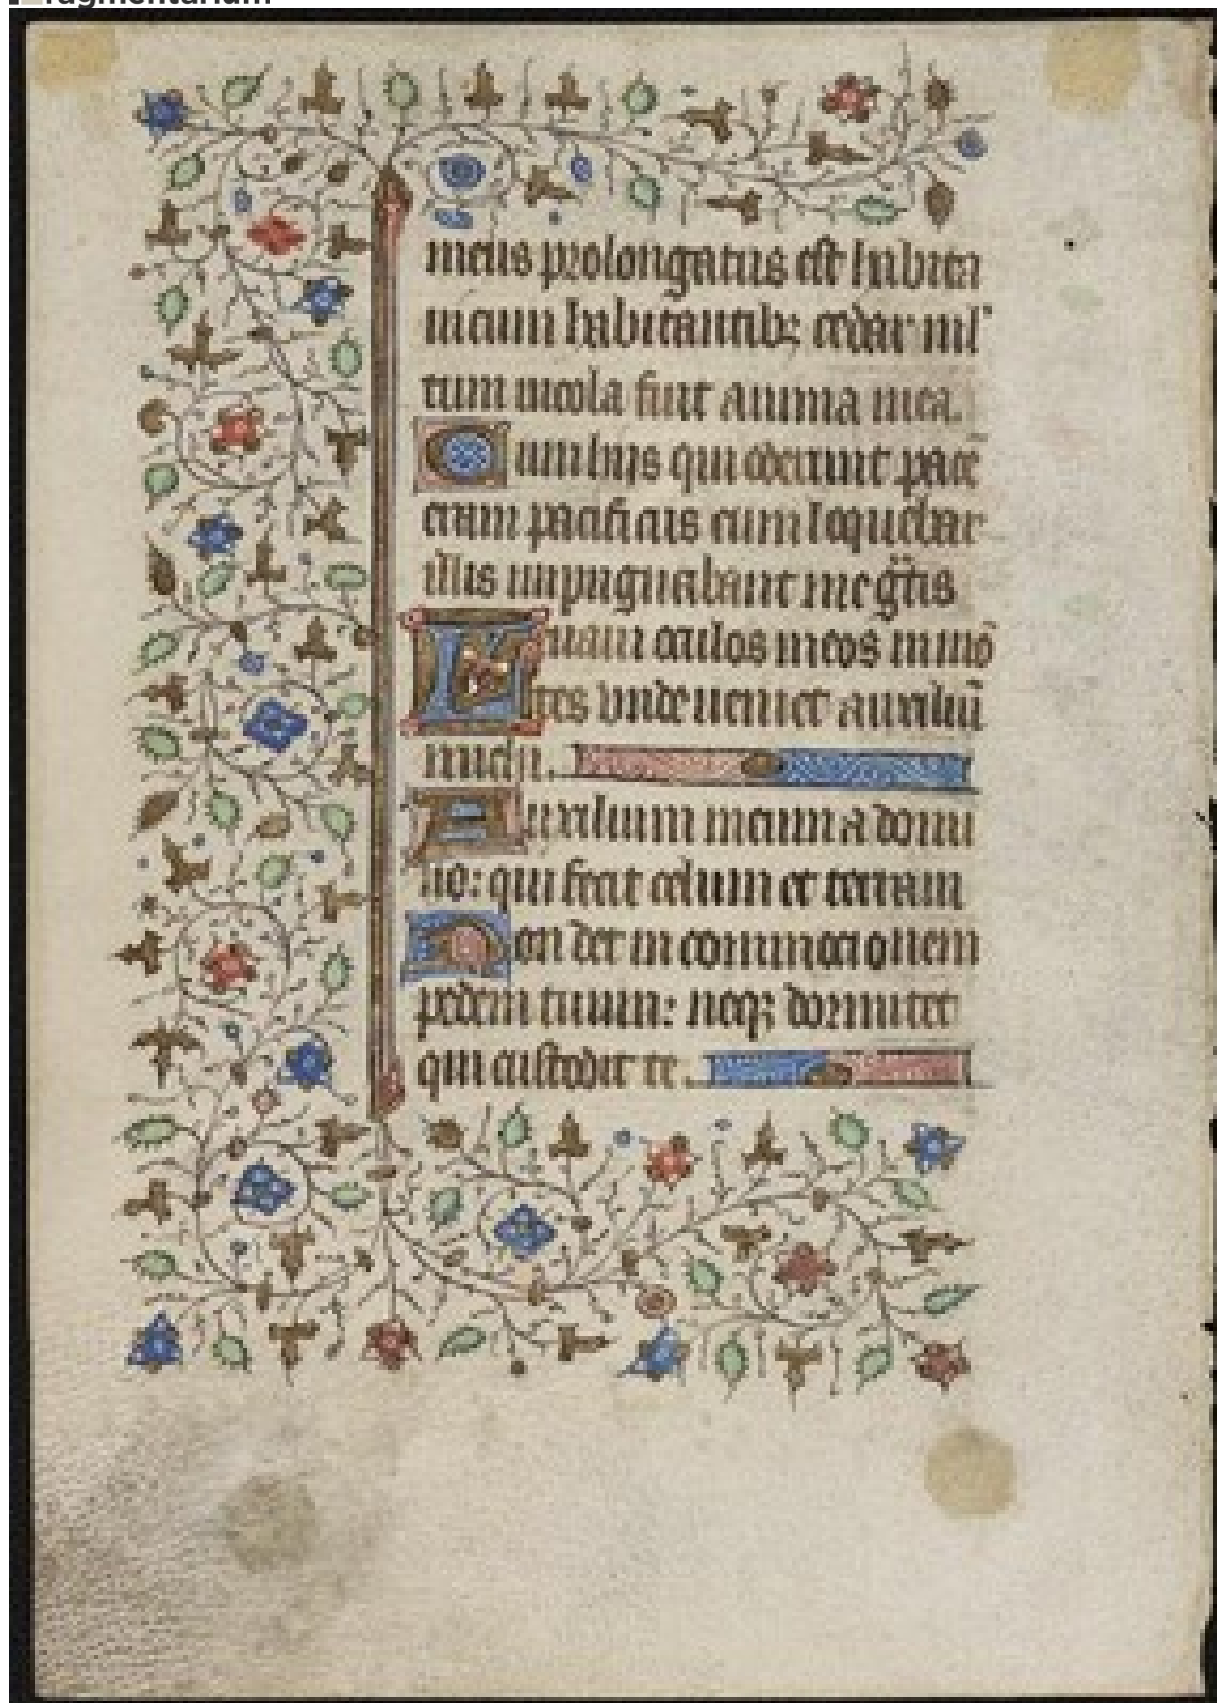 ragmentarium
meus prolongatus est habita
ui cum habitantibꝫ cedar ml'
tum incola fuit anima mea.
Cum hijs qui oderunt pacē
eram pacificus cum loquebar
illis impugnabant me gͣtis
Leuaui oculos meos in mō
tes vnde ueniet auxiliū
michi.
Auxilium meum a domi
no: qui fecit celum et terram
Non det in commocionem
pedem tuum: neqꝫ dormitet
qui custodit te.